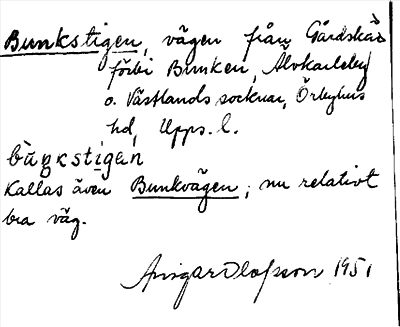 Bunkstigen, vägen från Gårdskär
förbi Bunken, Älvkarleby
o. Västlands socknar, Örbyhus
hd, Upps. l.
Kallas även Bunkvägen; nu relativt
bra väg.
Ansgar Olofsson 1951